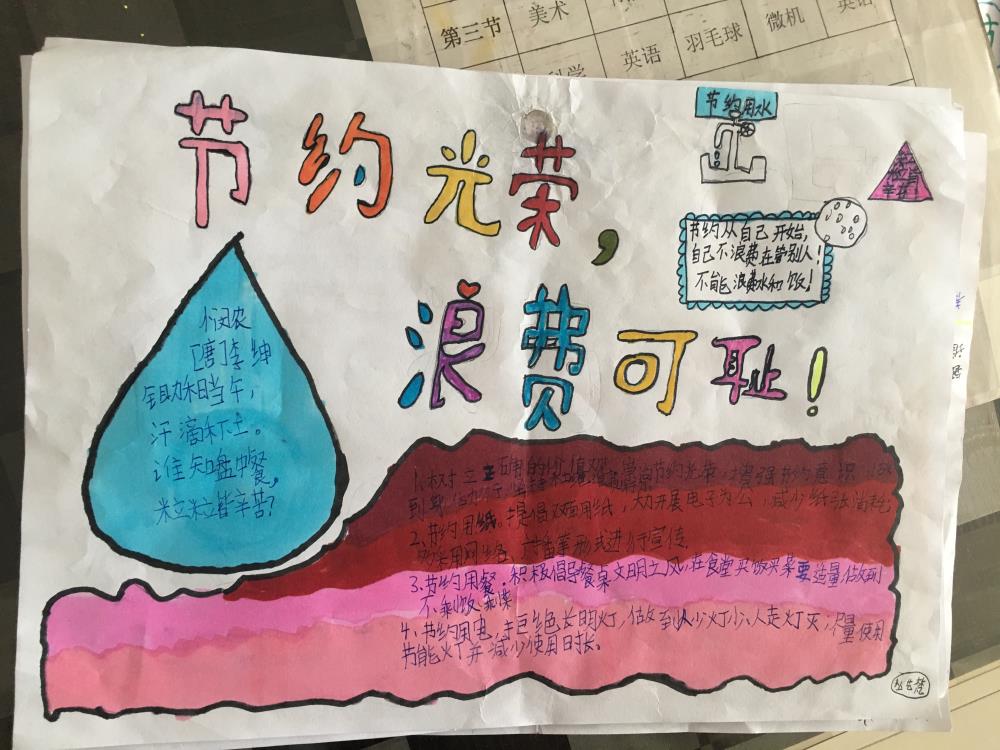 第三节
美术
英语
羽毛球
微机
英语
节约光荣，
浪费可耻！
节约用水
节约从自己开始，
自己不浪费在管别人！
不能浪费水和饭！
悯农
[唐]李绅
锄禾日当午，
汗滴禾下土。
谁知盘中餐，
粒粒皆辛苦？
1、树立正确的价值观 节约光荣，增强节约意识，做
到
2、节约用纸。提倡双面用纸，大力开展电子办公，减少纸张消耗
采用网络、广播等形式进行宣传.
3、节约用餐.积极倡导餐桌文明之风,在食堂买饭买菜要适量做到
不剩饭 菜
4、节约用电 拒绝长明灯,做到人少灯少、人走灯灭;尽量使用
节能灯并减少使用时长。